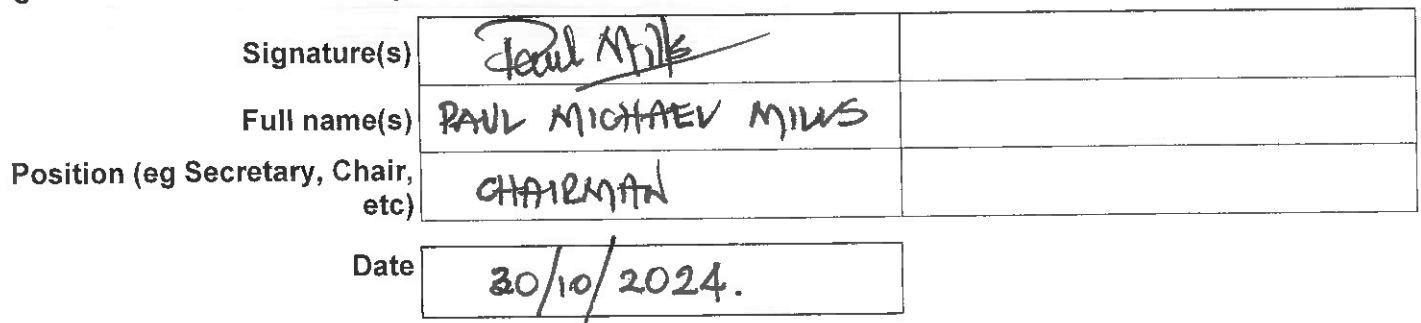 Signature(s) Paul Mills
Full name(s) PAUL MICHAEL MILLS
Position (eg Secretary, Chair,
etc) CHAIRMAN
Date 30/10/2024.